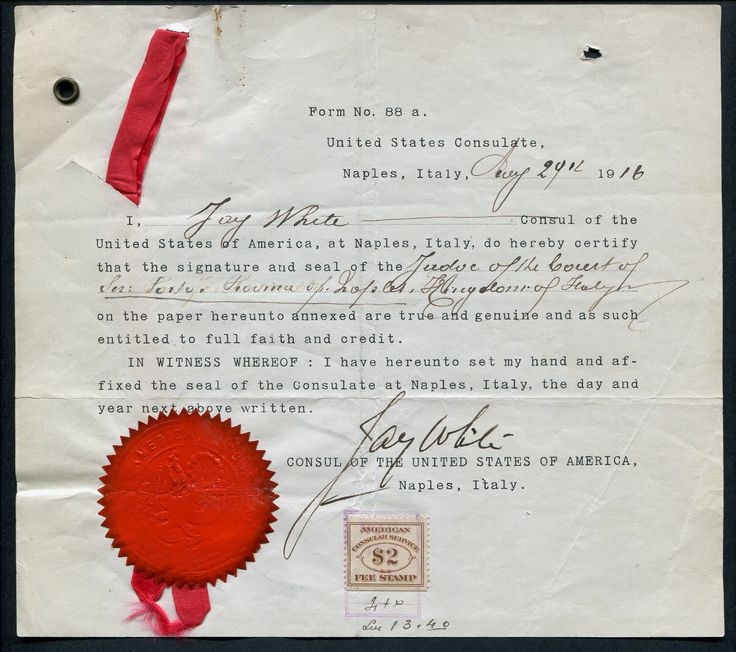 Form No. 88 a.
United States Consulate,
Naples, Italy, 29th 1916
I, Jay White Consul of the
United States of America, at Naples, Italy, do hereby certify
that the signature and seal of the Judge of the Court of
Province of Naples, Kingdom of Italy
on the paper hereunto annexed are true and genuine and as such
entitled to full faith and credit.
IN WITNESS WHEREOF : I have hereunto set my hand and af-
fixed the seal of the Consulate at Naples, Italy, the day and
year next above written.
Jay White
CONSUL OF THE UNITED STATES OF AMERICA,
Naples, Italy.
AMERICAN
CONSULAR SERVICE
$2
FEE STAMP
13.40